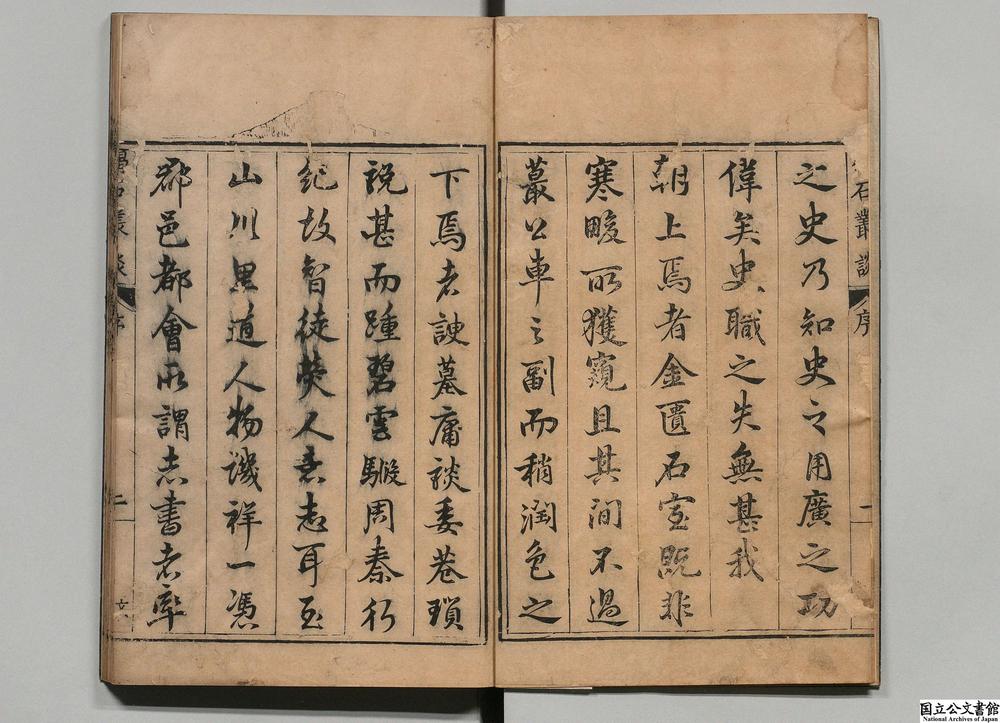 之史乃知史之用廣之功
偉矣史職之失無甚我
朝上焉者金匱石室既非
寒畯所獲窺且其間不過
蕞公車之副而稍潤色之
石叢談
序
一
下焉者諛墓庸談委巷瑣
說甚而踵碧雲騢周秦行
紀故智徒熒人意志耳至
山川里道人物譏祥一憑
郡邑都會所謂志書者率
叢談
序
二
国立公文書館
National Archives of Japan